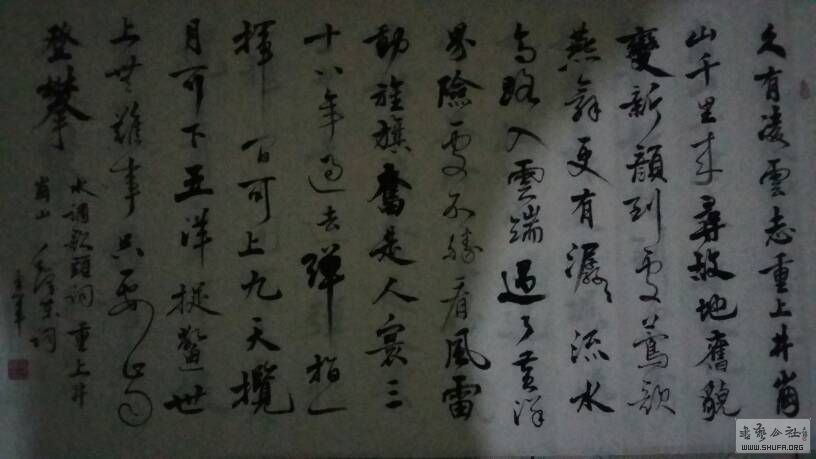 久有凌雲志重上井崗
山千里来尋故地舊貌
變新顔到處鶯歌
燕舞更有潺潺流水
高路入雲端過了黄洋
界險處不勝看風雷
動旌旗奮是人寰三
十八年過去彈指一
揮間可上九天攬
月可下五洋捉鱉世
上無難事只要肯
登攀
水調歌頭詞重上井
崗山毛澤東詞
書藝公社
WWW.SHUFA.ORG